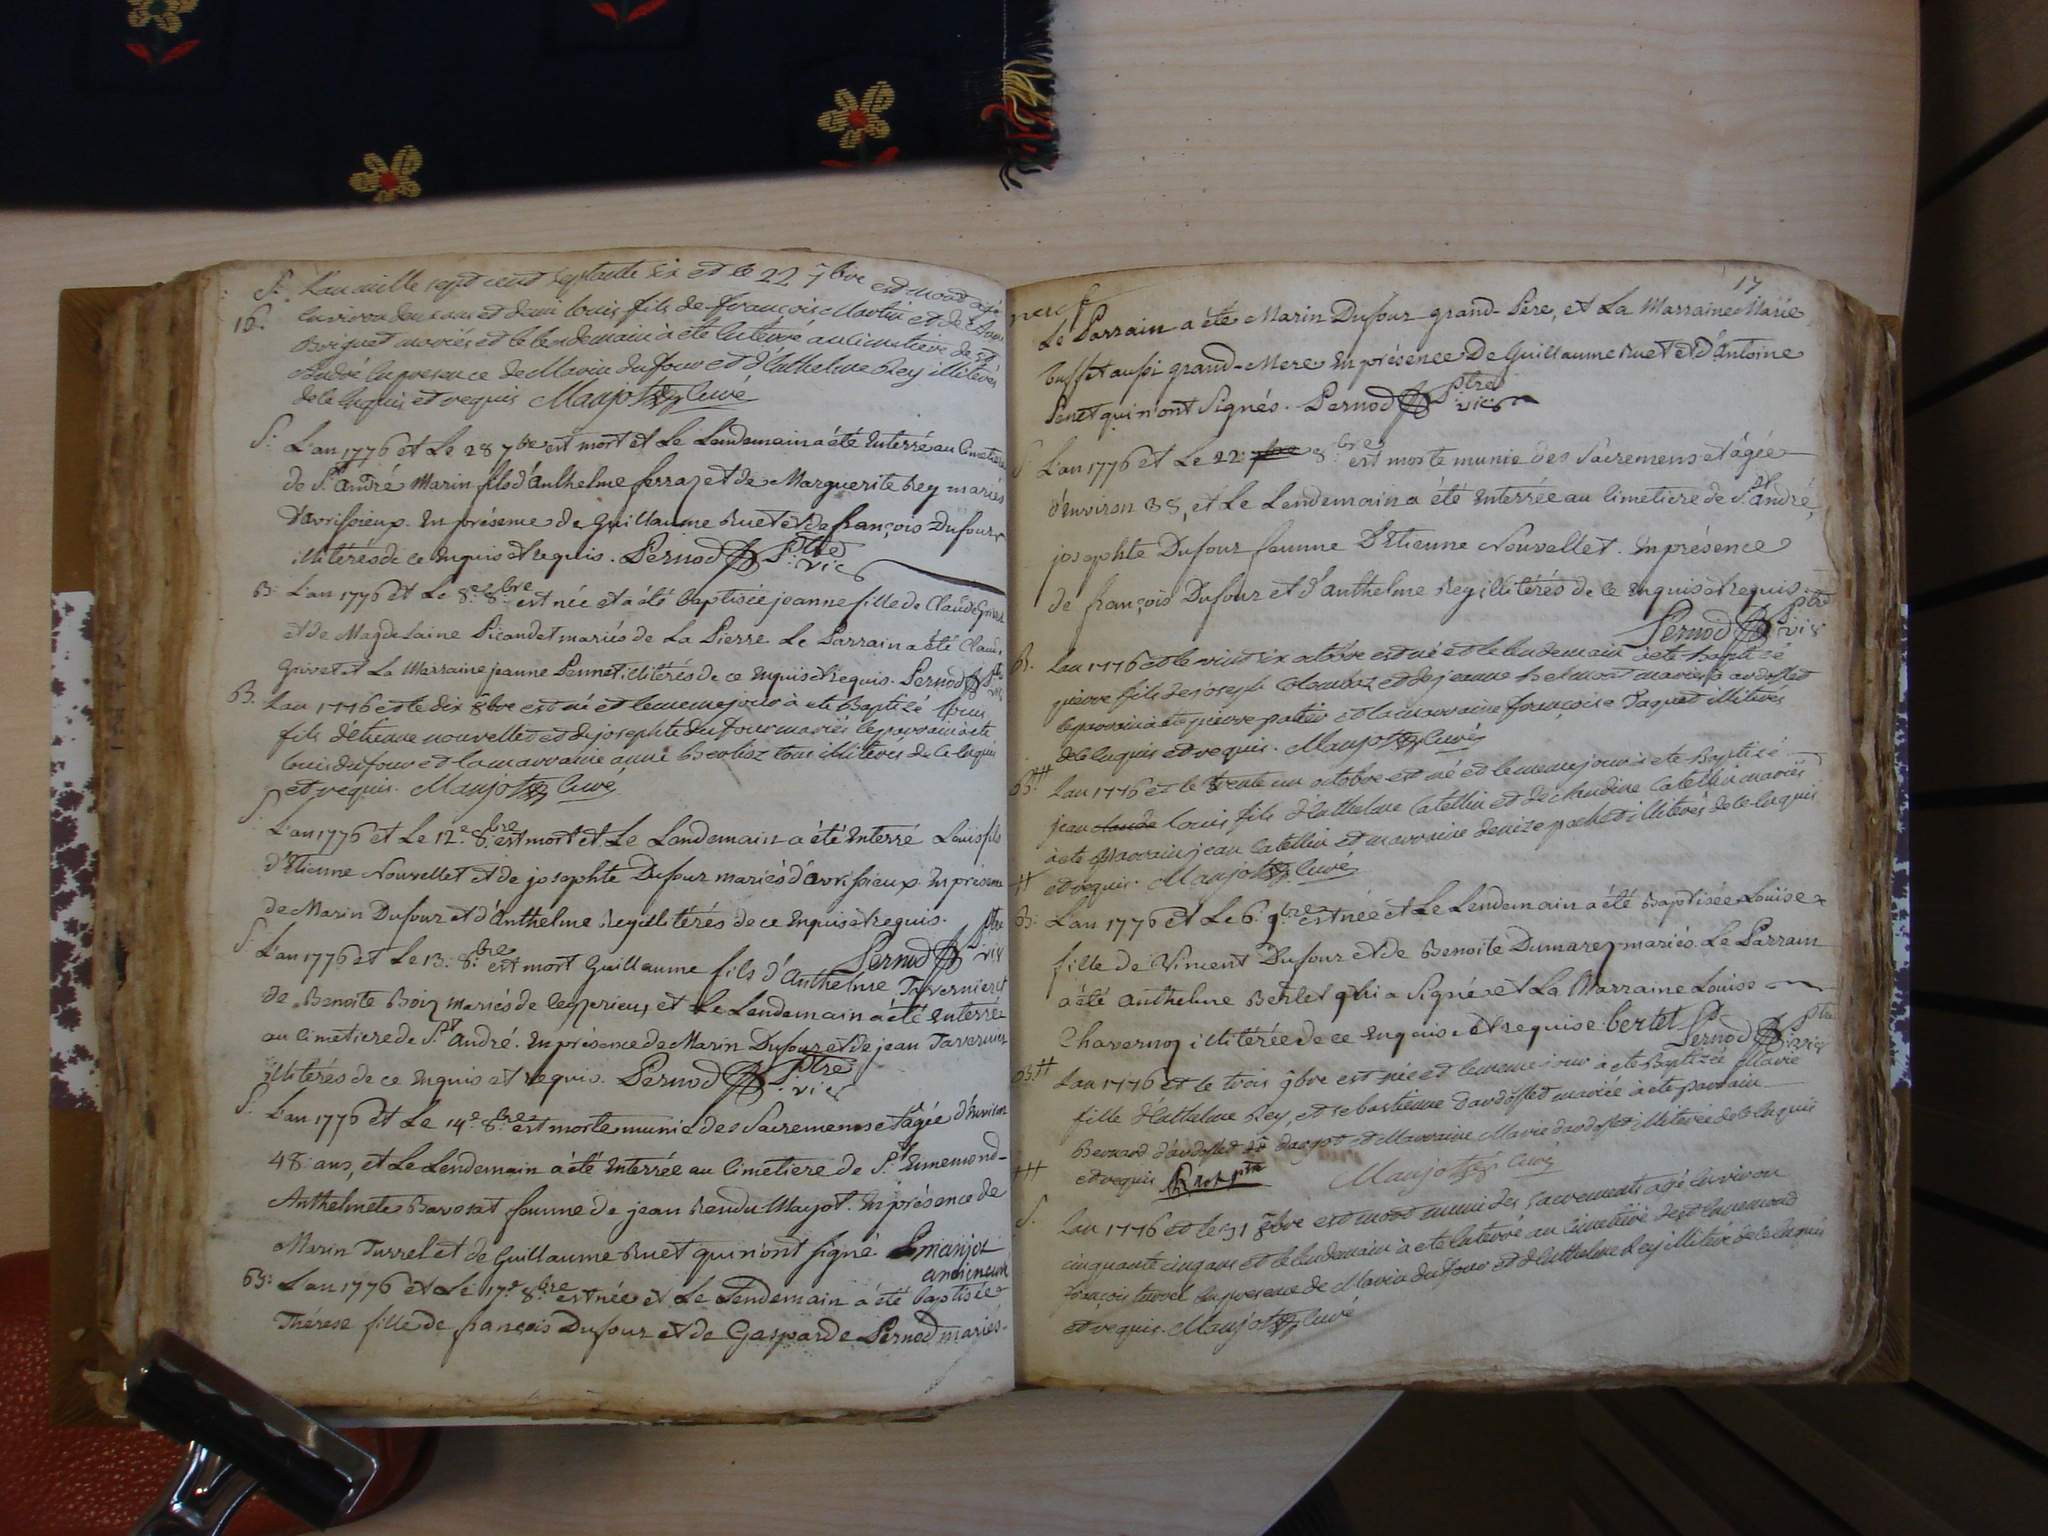 S. L'an mille sept cent septante six et le 22 7bre est mort agé
16. environ deux ans et demi louis fils de françois Martin et de
Borguet mariés et le lendemain à été Enterré au cimetiere de St
André En presence de Marin dufour et d'Anthelme Rey illiterés
de le Enquis et requis Manjot Curé
S: L'an 1776 et Le 28 7bre est mort et Le Lendemain a été Enterré au Cimetiere
de St. André Marin fils d'Anthelme ferraz et de Marguerite Rey mariés
d'avrissieux. En présence de Guillaume Ruet et de françois Dufour
illitérés de ce Enquis et requis. Pernod Ptre vic
B: L'an 1776 et Le 8e 8bre est née et a été Baptisée jeanne fille de Claude Grivet
et de Magdelaine Picandet mariés de La Pierre Le Parrain a été Claude
Grivet et La Marraine jeanne Pennet illitérés de ce Enquis et Requis. Pernod Ptre vic
B. L'an 1776 et le dix 8bre est né et le meme jour à été Baptizé louis
fils d'étienne nouvellet et de josephte du four mariés le parrain à été
louis du four et la marraine anne Berlioz tous illiterés de le Enquis
et requis. Manjot Curé
S. L'an 1776 et Le 12e 8bre est mort et Le Landemain a été Enterré Louis fils
d'Etienne Nouvellet et de josephte Dufour mariés d'avrissieux. En présence
de Marin Dufour et d'Anthelme Rey illitérés de ce Enquis et requis.
Pernod Ptre vic
S. L'an 1776 et Le 13. 8bre est mort Guillaume fils d'Anthelme Tavernier et
de Benoite Boiz mariés de et Le Lendemain a été Enterré
au Cimetiere de St. André. En présence de Marin Dufour et de jean Tavernier
illitérés de ce Enquis et requis. Pernod Ptre vic
S. L'an 1776 et Le 14e 8bre est morte munie des Sacremens et âgée d'Environ
48 ans, et Le Lendemain a été Enterrée au Cimetiere de St. Ennemond
Anthelmete Bavosat femme de jean Rendu Manjot. En présence de
Marin Turrel et de Guillaume Ruet qui n'ont signé. manjot
ancien curé
B: L'an 1776 et Le 17e 8bre est née et Le Lendemain a été baptisée
Thérese fille de françois Dufour et de Gasparde Pernod mariés.
17
Le Parrain a été Marin Dufour grand-Pere, et La Marraine Marie
buffet aussi grand-Mere En présence De Guillaume Ruet et d'Antoine
Penet qui n'ont Signés. Pernod Ptre vic
S L'an 1776 et Le 22 8bre est morte munie des Sacremens et âgée
d'Environ 38, et Le Lendemain a été Enterrée au Cimetiere de St. André,
josephte Dufour femme D'Etienne Nouvellet. En présence
de françois Dufour et d'Anthelme Rey illitérés de ce Enquis et Requis.
Pernod Ptre vic
B. L'an 1776 et le vint six octobre est né et le lendemain à été Baptizé
pierre fils de joseph Colomboz et de jeanne Belmont mariés
le parrain à été pierre patier et la marraine françoise Paquet illiterés
de le Enquis et requis. Manjot Curé
B++ L'an 1776 et le trente un octobre est né et le meme jour à été Baptizé
jean claude louis fils d'Anthelme Catellin et de Claudine Catellin mariés
à été parrain jean Catellin et marraine denize pochet illiterés de le Enquis
++ et requis. Manjot Curé
B: L'an 1776 et Le 6. 9bre est née et Le Lendemain a été Baptisée Louise
fille de Vincent Dufour et de Benoite Dumarez mariés. Le Parrain
a été Anthelme Berlet qui a Signé et La Marraine Louise
Chavernoz illitérée de ce Enquise et requise. bertet Pernod Ptre vic
B.++ L'an 1776 et le trois 9bre est née et le meme jour à été Baptizée Marie
fille d'Anthelme Rey, et sebastienne dardosset mariés à été parrain
Bernard dardosset et Marraine Marie dardosset illiterés de le Enquis
+++ et requis Manjot Curé
S. L'an 1776 et le est mort muni des sacrements agé Environ
cinquante cinq ans et le lendemain à été Enterré au Cimetiere de st Ennemond
françois turrel En presence de Marin du four et d'Anthelme Rey illiteré de le Enquis
et requis. Manjot Curé